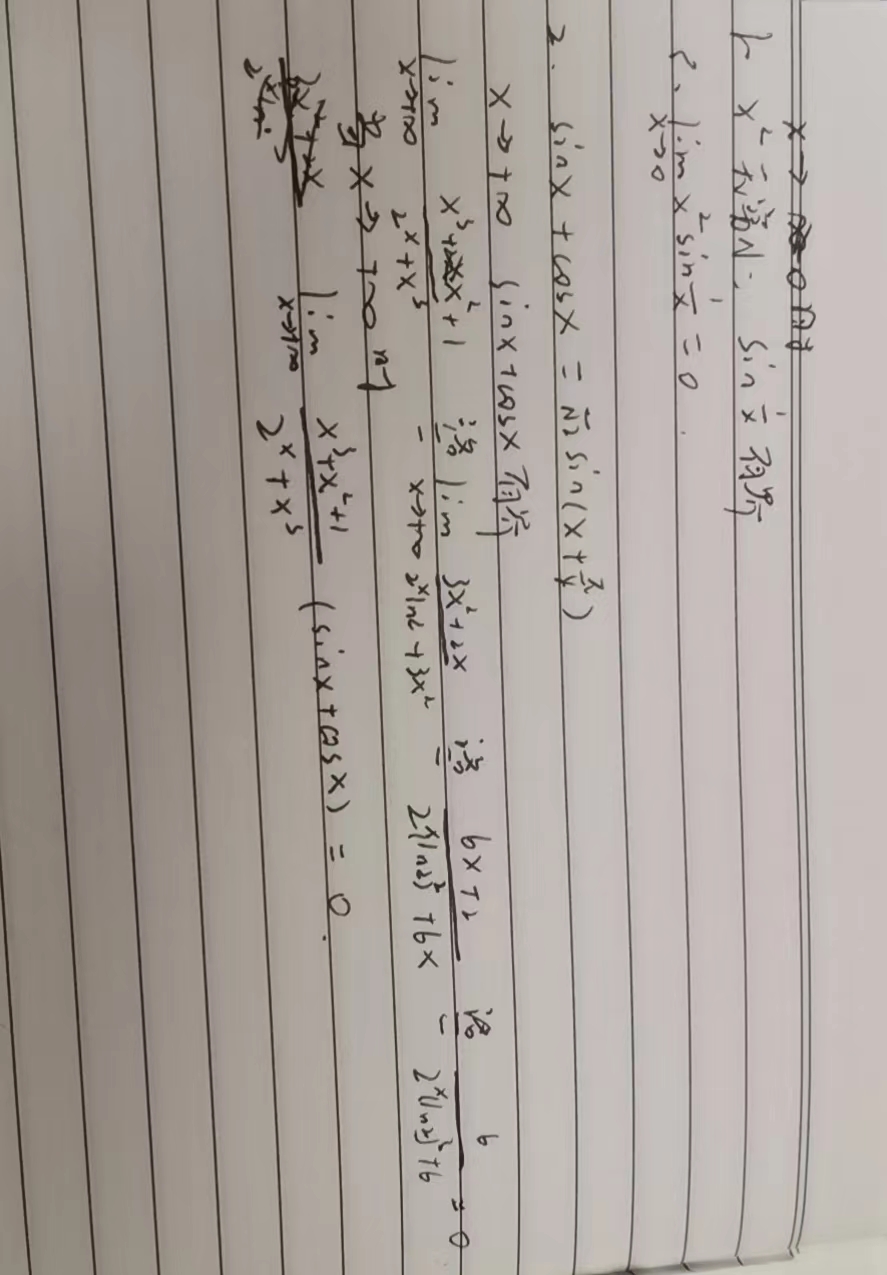 x→0时
1. x² 无穷小. sin 1/x 有界
∴ lim x→0 x² sin 1/x = 0.
2. sinx + cosx = √2 sin(x + π/4)
x→+∞ sinx+cosx 有界
lim x→+∞ (x³+x²+1)/(2ˣ+x³) 洛= lim x→+∞ (3x²+2x)/(2ˣln2+3x²) 洛= (6x+2)/(2ˣ(ln2)²+6x) 洛= 6/(2ˣ(ln2)³+6) = 0
当x→+∞时
lim x→+∞ (x³+x²+1)/(2ˣ+x³) (sinx+cosx) = 0.